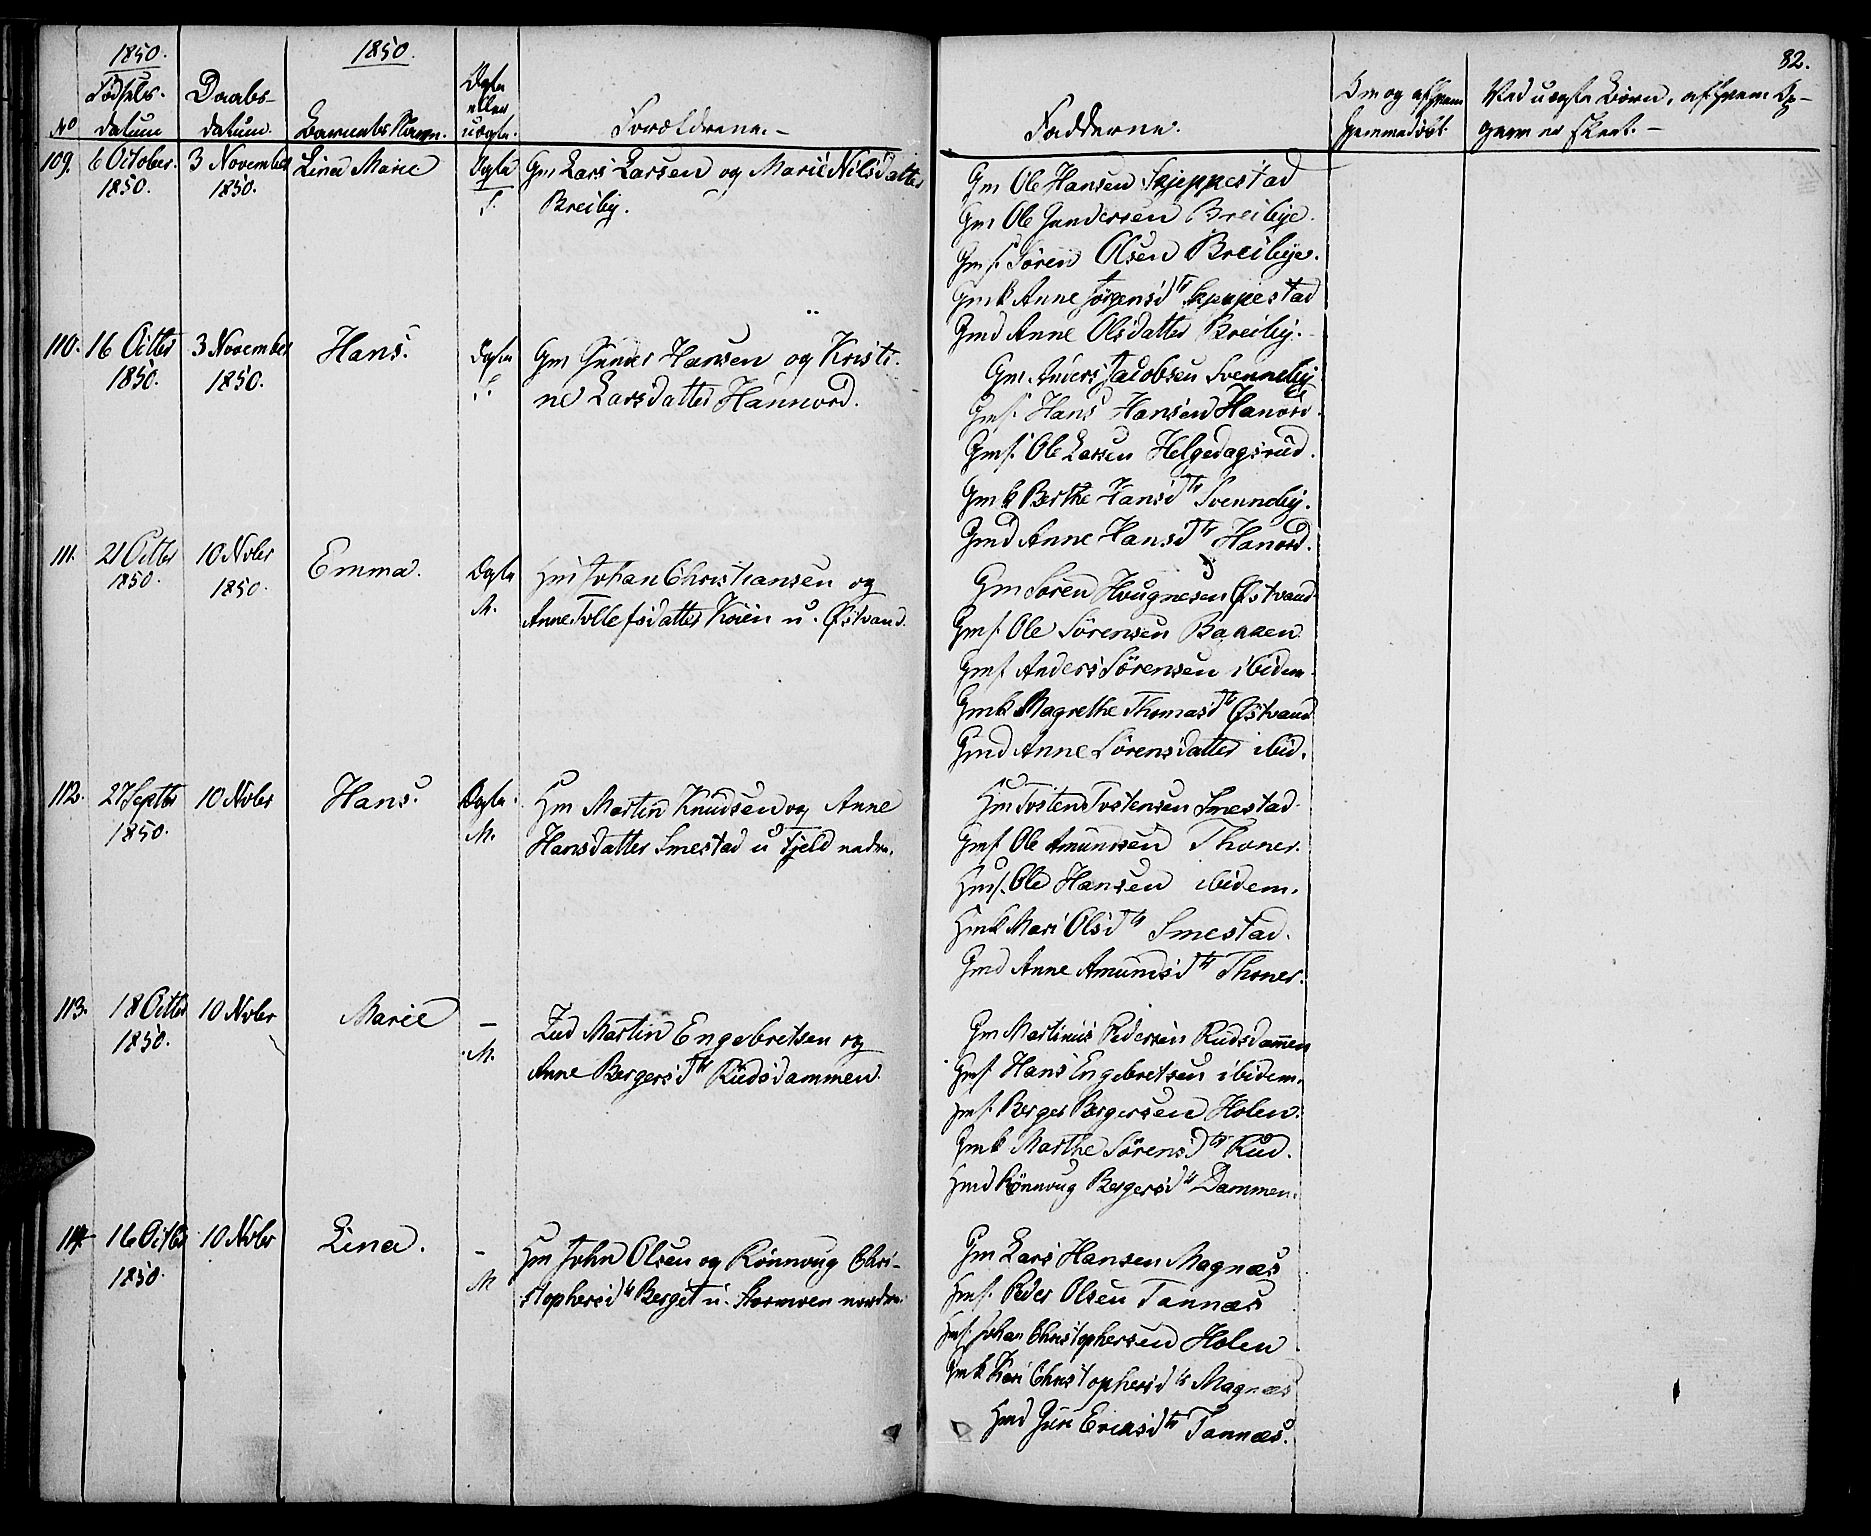 1850.
1850.
82.
No
Födsels-
datum
Daabs-
datum.
Barnets Navn.
Ægte
eller
uægte.
Forældrene.
Fadderne.
Om og af hvem
hjemmedöbt.
Ved uægte Börn, af hvem Op-
gaven er skeet.
109.
6 October
1850.
3 November
1850.
Lina Marie
Ægte
T.
Gm Lars Larsen og Marie Nilsdatter
Breiby.
Gm Ole Hansen Skjeppestad
Gm Ole Gundersen Breibye.
Gmf. Sören Olsen Breibye.
Gmk Anne Jörgensdtr Skjeppestad
Gmd Anne Olsdatter Breiby.
110.
16 Octbr
1850.
3 November
1850.
Hans.
Ægte
T.
Gm Gunder Hansen og Kristi-
ne Larsdatter Hannord.
Gm. Anders Jacobsen Svenneby
Gmf. Hans Hansen Hanord.
Gmf. Ole Larsen Helgedagsrud.
Gmk Berthe Hansdtr Svenneby.
Gmd Anne Hansdtr Hanord.
111.
21 Octbr
1850.
10 Novbr
1850.
Emma.
Ægte
M.
Hm Johan Christiansen og
Anne Tollefsdatter Koien u. Østvand.
Gm Sören Hougnesen Østvand
Gmf. Ole Sörensen Bakken
Gmf Anders Sörensen ibidem.
Gmk Magrethe Thomasdtr Østvand
Gmd Anne Sörensdatter ibid.
112.
27 Septbr
1850.
10 Novbr
Hans.
Ægte.
M.
Hm Martin Knudsen og Anne
Hansdatter Smestad u Fjeld nedre.
Hm Tosten Tostensen Smestad.
Gmf Ole Amundsen Thoner.
Hmf. Ole Hansen ibidem.
Hmk Mari Olsdtr Smestad.
Gmd Anne Amundsdtr Thoner.
113.
18 Octbr
1850.
10 Novbr
Marie
-
M.
Ind Martin Engebretsen og
Anne Bergersdtr Rudsdammen.
Gm Martinus Pedersen Rudsdam̅en
Gmf. Hans Engebretsen ibidem.
Hmf. Berger Bergersen Holen.
Gmk Marthe Sörensdtr Rud.
Hmd Rönnoug Bergersdtr Dammen.
114
16 Octbr
1850.
10 Novbr
Lina.
-
M
Hm John Olsen og Rönnoug Chri-
stophersdtr Berget u. Stormoen nordre.
Gm Lars Hansen Magnæs
Hmf. Peder Olsen Tannæs
Hmf. Johan Christophersen Holen
Gmk Kari Christophersdtr Magnæs
Hmd Guri Ericksdtr Tannæs.